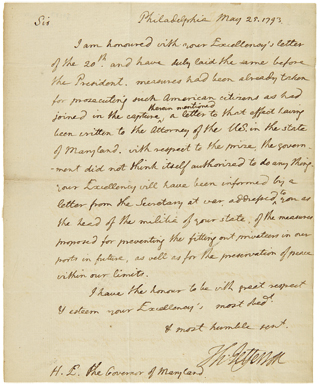 Sir Philadelphia May 21. 1793.
I am honoured with your Excellency's letter
of the 20th and have duly laid the same before
the President. measures had been already taken
for prosecuting such American citizens as had
joined in the capture therein mentioned, a letter to that effect having
been written to the Attorney of the US. in the state
of Maryland. with respect to the prize, the govern-
ment did not think itself authorized to do any thing.
your Excellency will have been informed by a
letter from the Secretary at war addressed to you as
the head of the militia of your state, of the measures
proposed for preventing the fitting out privateers in our
ports in future, as well as for the preservation of peace
within our limits.
I have the honour to be with great respect
& esteem your Excellency's most obedt
& most humble servt.
Th: Jefferson
H. E. the Governor of Maryland.